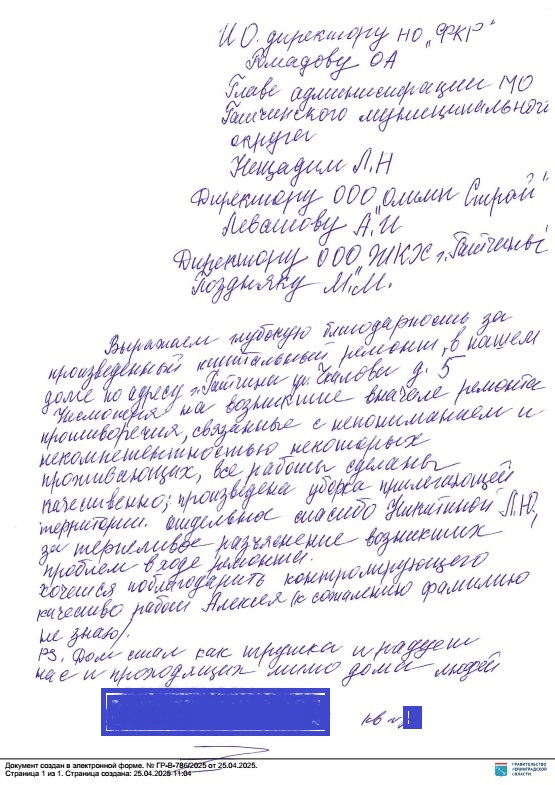 И.О. директору НО „ФКР"
Гомадову ОА
Главе администрации МО
Гатчинского муниципального
округа
Нещадим Л.Н
Директору ООО „Олимп Строй"
Левашову А.И
Директору ООО „ЖКХ г.Гатчины"
Поздняку М.М.
Выражаем глубокую благодарность за
произведенный капитальный ремонт, в нашем
доме по адресу г.Гатчина ул. Чкалова д. 5
Несмотря на возникшие вначале ремонта
противоречия, связанные с непониманием и
некомпетентностью некоторых
проживающих, все работы сделаны
качественно; произведена уборка прилегающей
территории. Отдельное спасибо Никитиной Л.Ю,
за терпеливое разъяснение возникших
проблем в ходе ремонта.
Хочется поблагодарить контролирующего
качество работ Алексея (к сожалению фамилию
не знаю).
PS. Дом стал как игрушка и радует
нас и проходящих мимо дома людей
кв №
Документ создан в электронной форме. № ГР-В-786/2025 от 25.04.2025.
Страница 1 из 1. Страница создана: 25.04.2025 11:04
ПРАВИТЕЛЬСТВО
ЛЕНИНГРАДСКОЙ
ОБЛАСТИ